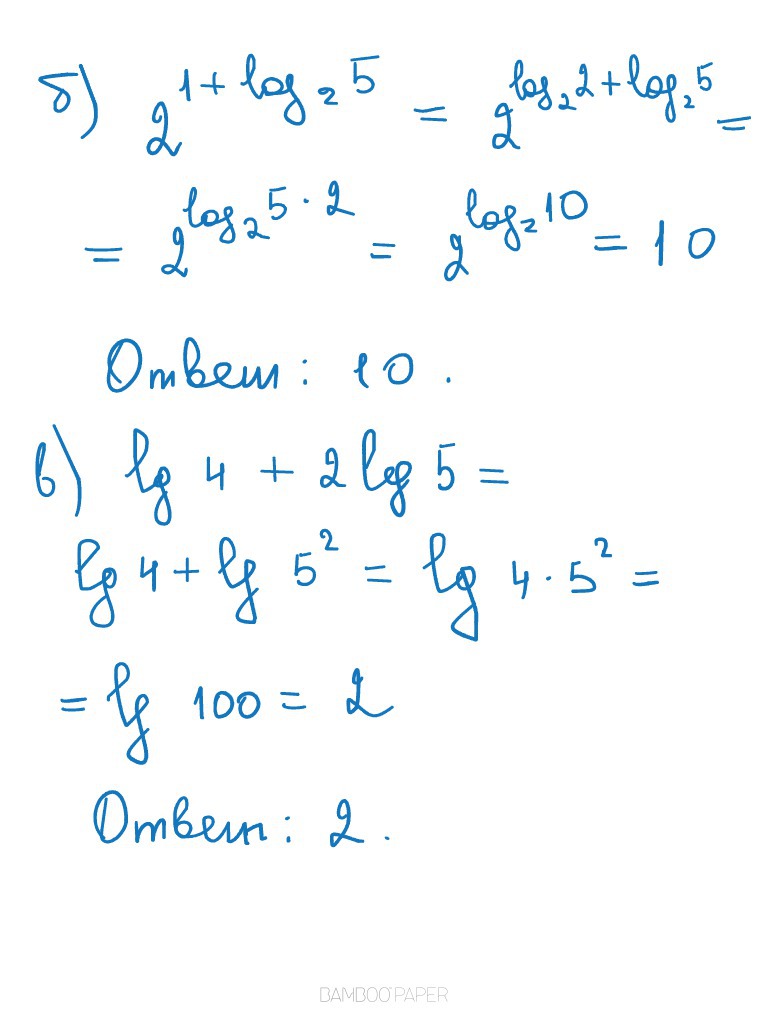 б) 2^{1 + log₂ 5} = 2^{log₂ 2 + log₂ 5} =
= 2^{log₂ 5 · 2} = 2^{log₂ 10} = 10
Ответ: 10.
в) lg 4 + 2 lg 5 =
lg 4 + lg 5² = lg 4 · 5² =
= lg 100 = 2
Ответ: 2.
BAMBOO PAPER